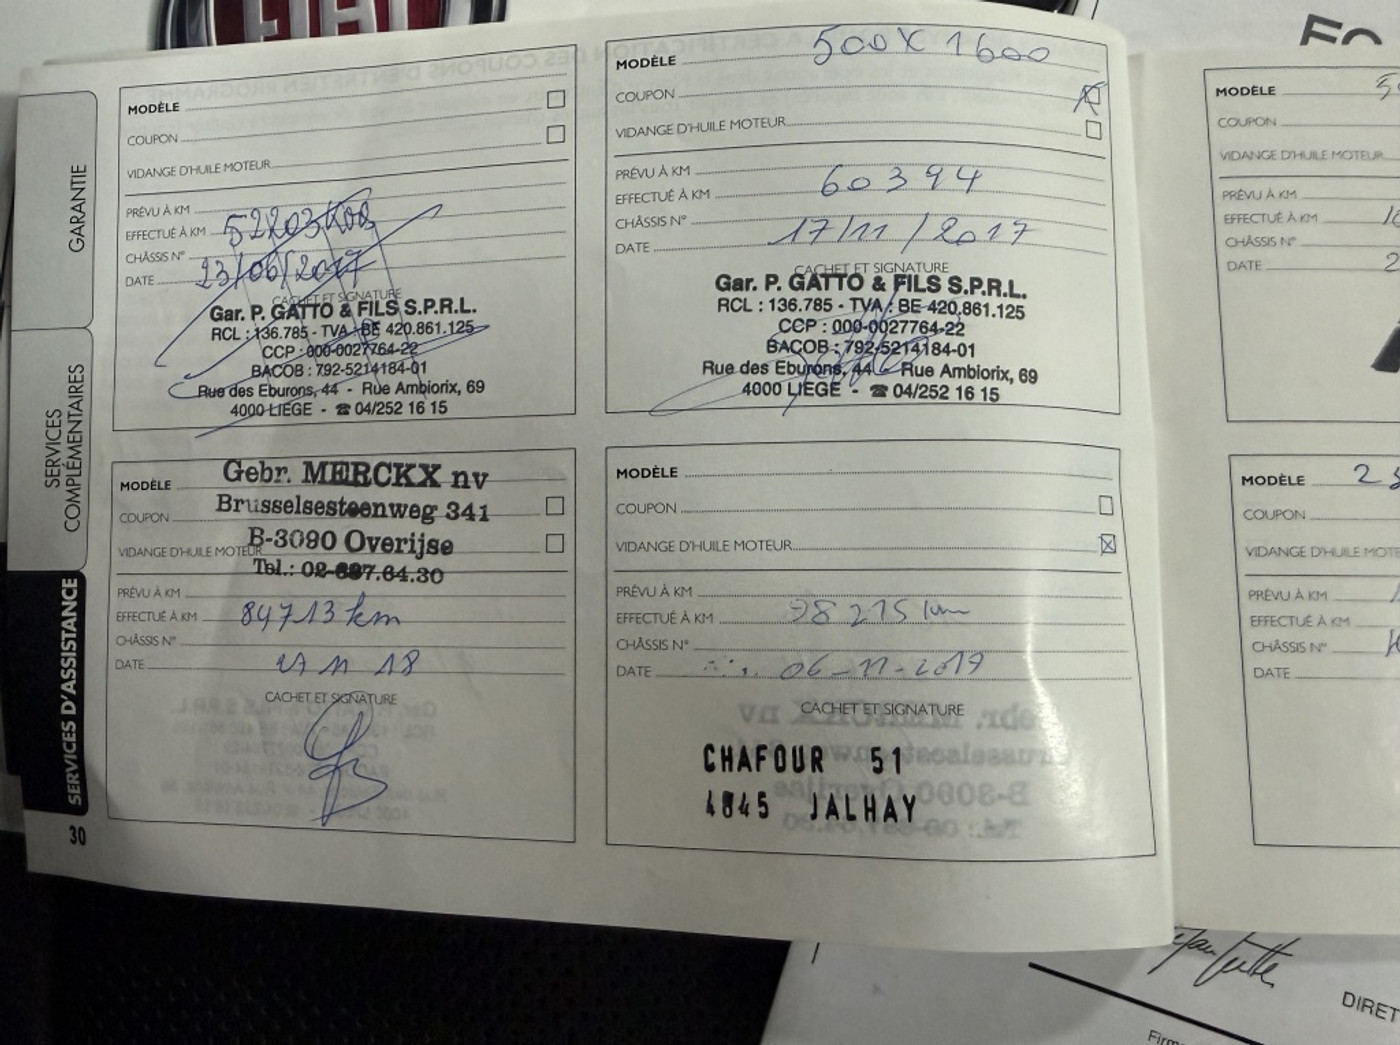 FIAT
GARANTIE
SERVICES
COMPLÉMENTAIRES
SERVICES D'ASSISTANCE
30
MODÈLE
COUPON
VIDANGE D'HUILE MOTEUR
PRÉVU À KM
EFFECTUÉ À KM 52203 km
CHÂSSIS N°
DATE 23/06/2017
CACHET ET SIGNATURE
Gar. P. GATTO & FILS S.P.R.L.
RCL : 136.785 - TVA : BE 420.861.125
CCP : 000-0027764-22
BACOB : 792-5214184-01
Rue des Eburons, 44 - Rue Ambiorix, 69
4000 LIEGE - ☎ 04/252 16 15
MODÈLE 500X 1600
COUPON
VIDANGE D'HUILE MOTEUR
PRÉVU À KM
EFFECTUÉ À KM 60394
CHÂSSIS N°
DATE 17/11/2017
CACHET ET SIGNATURE
Gar. P. GATTO & FILS S.P.R.L.
RCL : 136.785 - TVA : BE 420.861.125
CCP : 000-0027764-22
BACOB : 792-5214184-01
Rue des Eburons, 44 - Rue Ambiorix, 69
4000 LIEGE - ☎ 04/252 16 15
Gebr. MERCKX nv
MODÈLE
Brusselsesteenweg 341
COUPON
B-3090 Overijse
VIDANGE D'HUILE MOTEUR
Tel.: 02-687.64.30
PRÉVU À KM
EFFECTUÉ À KM 84713 km
CHÂSSIS N°
DATE 27 11 18
CACHET ET SIGNATURE
MODÈLE
COUPON
VIDANGE D'HUILE MOTEUR
PRÉVU À KM
EFFECTUÉ À KM 98215 km
CHÂSSIS N°
DATE 06-11-2019
CACHET ET SIGNATURE
CHAFOUR 51
4845 JALHAY
MODÈLE
COUPON
VIDANGE D'HUILE MOTEUR
PRÉVU À KM
EFFECTUÉ À KM
CHÂSSIS N°
DATE
MODÈLE
COUPON
VIDANGE D'HUILE MOTEUR
PRÉVU À KM
EFFECTUÉ À KM
CHÂSSIS N°
DATE
DIRET
Firm